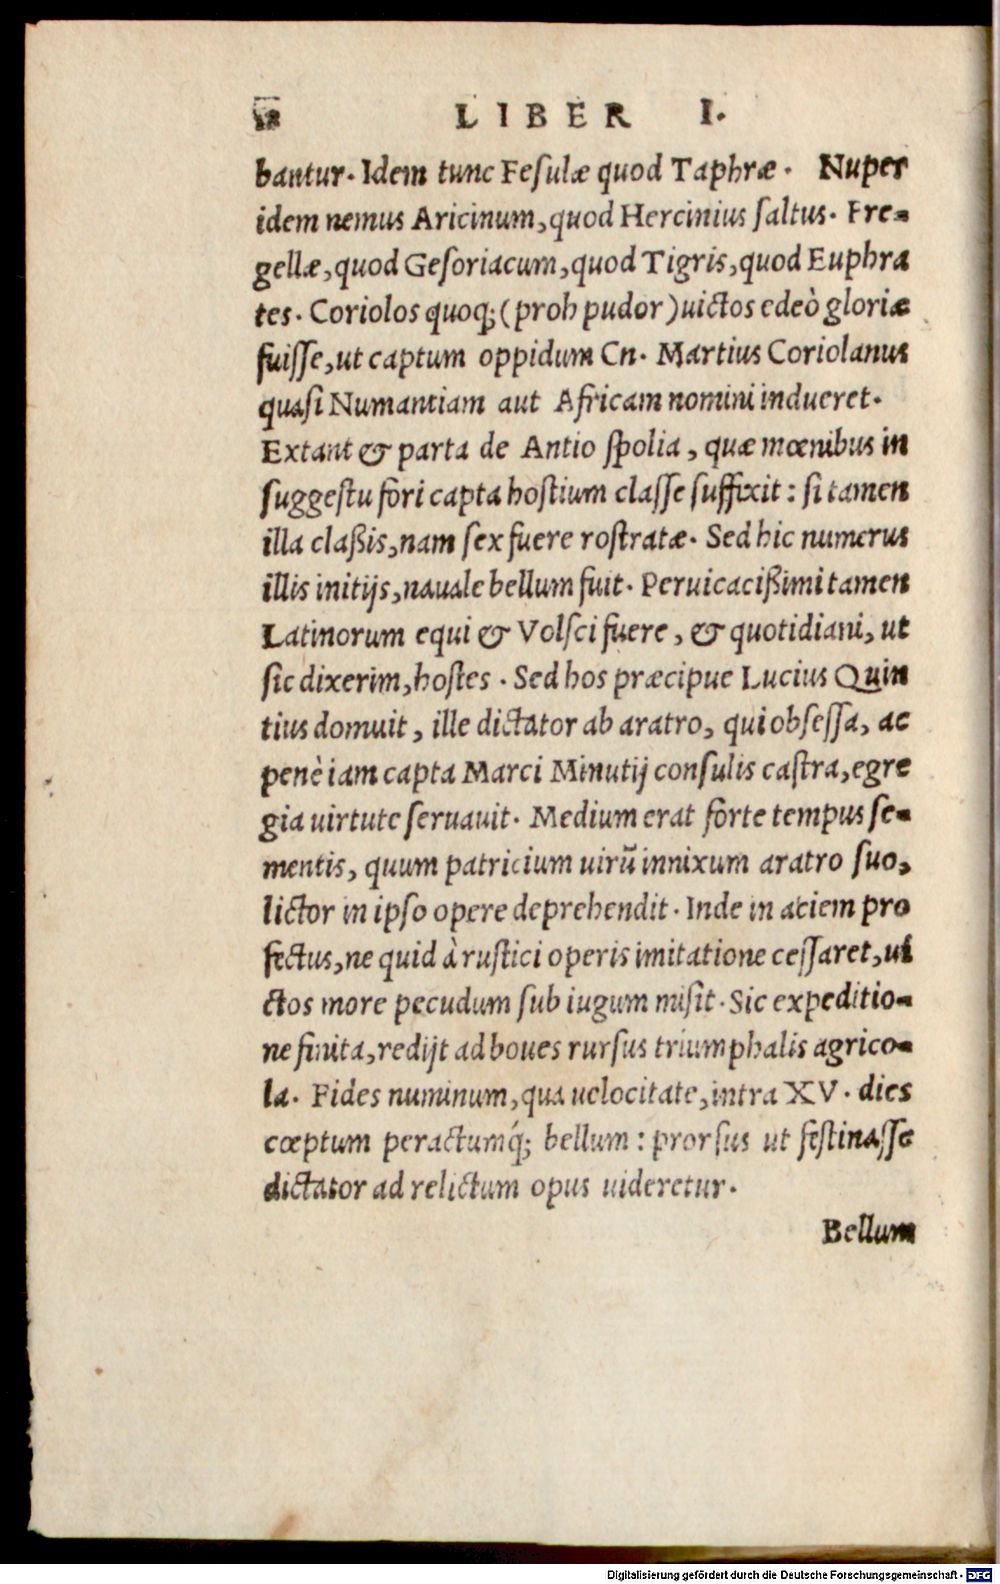 LIBER I.
bantur. Idem tunc Fesulæ quod Taphræ. Nuper
idem nemus Aricinum, quod Hercinius ſaltus. Fre-
gellæ, quod Geſoriacum, quod Tigris, quod Euphra
tes. Coriolos quoq; (proh pudor) uictos edeò gloriæ
fuiſſe, ut captum oppidum Cn. Martius Coriolanus
quaſi Numantiam aut Africam nomini indueret.
Extant & parta de Antio ſpolia, quæ mœnibus in
ſuggeſtu fori capta hoſtium claſſe ſuffixit: ſi tamen
illa claßis, nam ſex fuere roſtratæ. Sed hic numerus
illis initijs, nauale bellum fuit. Peruicacißimi tamen
Latinorum equi & Volſci fuere, & quotidiani, ut
ſic dixerim, hoſtes. Sed hos præcipue Lucius Quin
tius domuit, ille dictator ab aratro, qui obſeſſa, ac
penè iam capta Marci Minutij conſulis caſtra, egre
gia uirtute ſeruauit. Medium erat forte tempus ſe-
mentis, quum patricium uirũ innixum aratro ſuo,
lictor in ipſo opere deprehendit. Inde in aciem pro
fectus, ne quid à ruſtici operis imitatione ceſſaret, ui
ctos more pecudum ſub iugum miſit. Sic expeditio-
ne finita, redijt ad boues rurſus triumphalis agrico-
la. Fides numinum, qua uelocitate, intra XV. dies
cœptum peractumq́; bellum: prorſus ut feſtinaſſe
dictator ad relictum opus uideretur.
Bellum
Digitalisierung gefördert durch die Deutsche Forschungsgemeinschaft - DFG